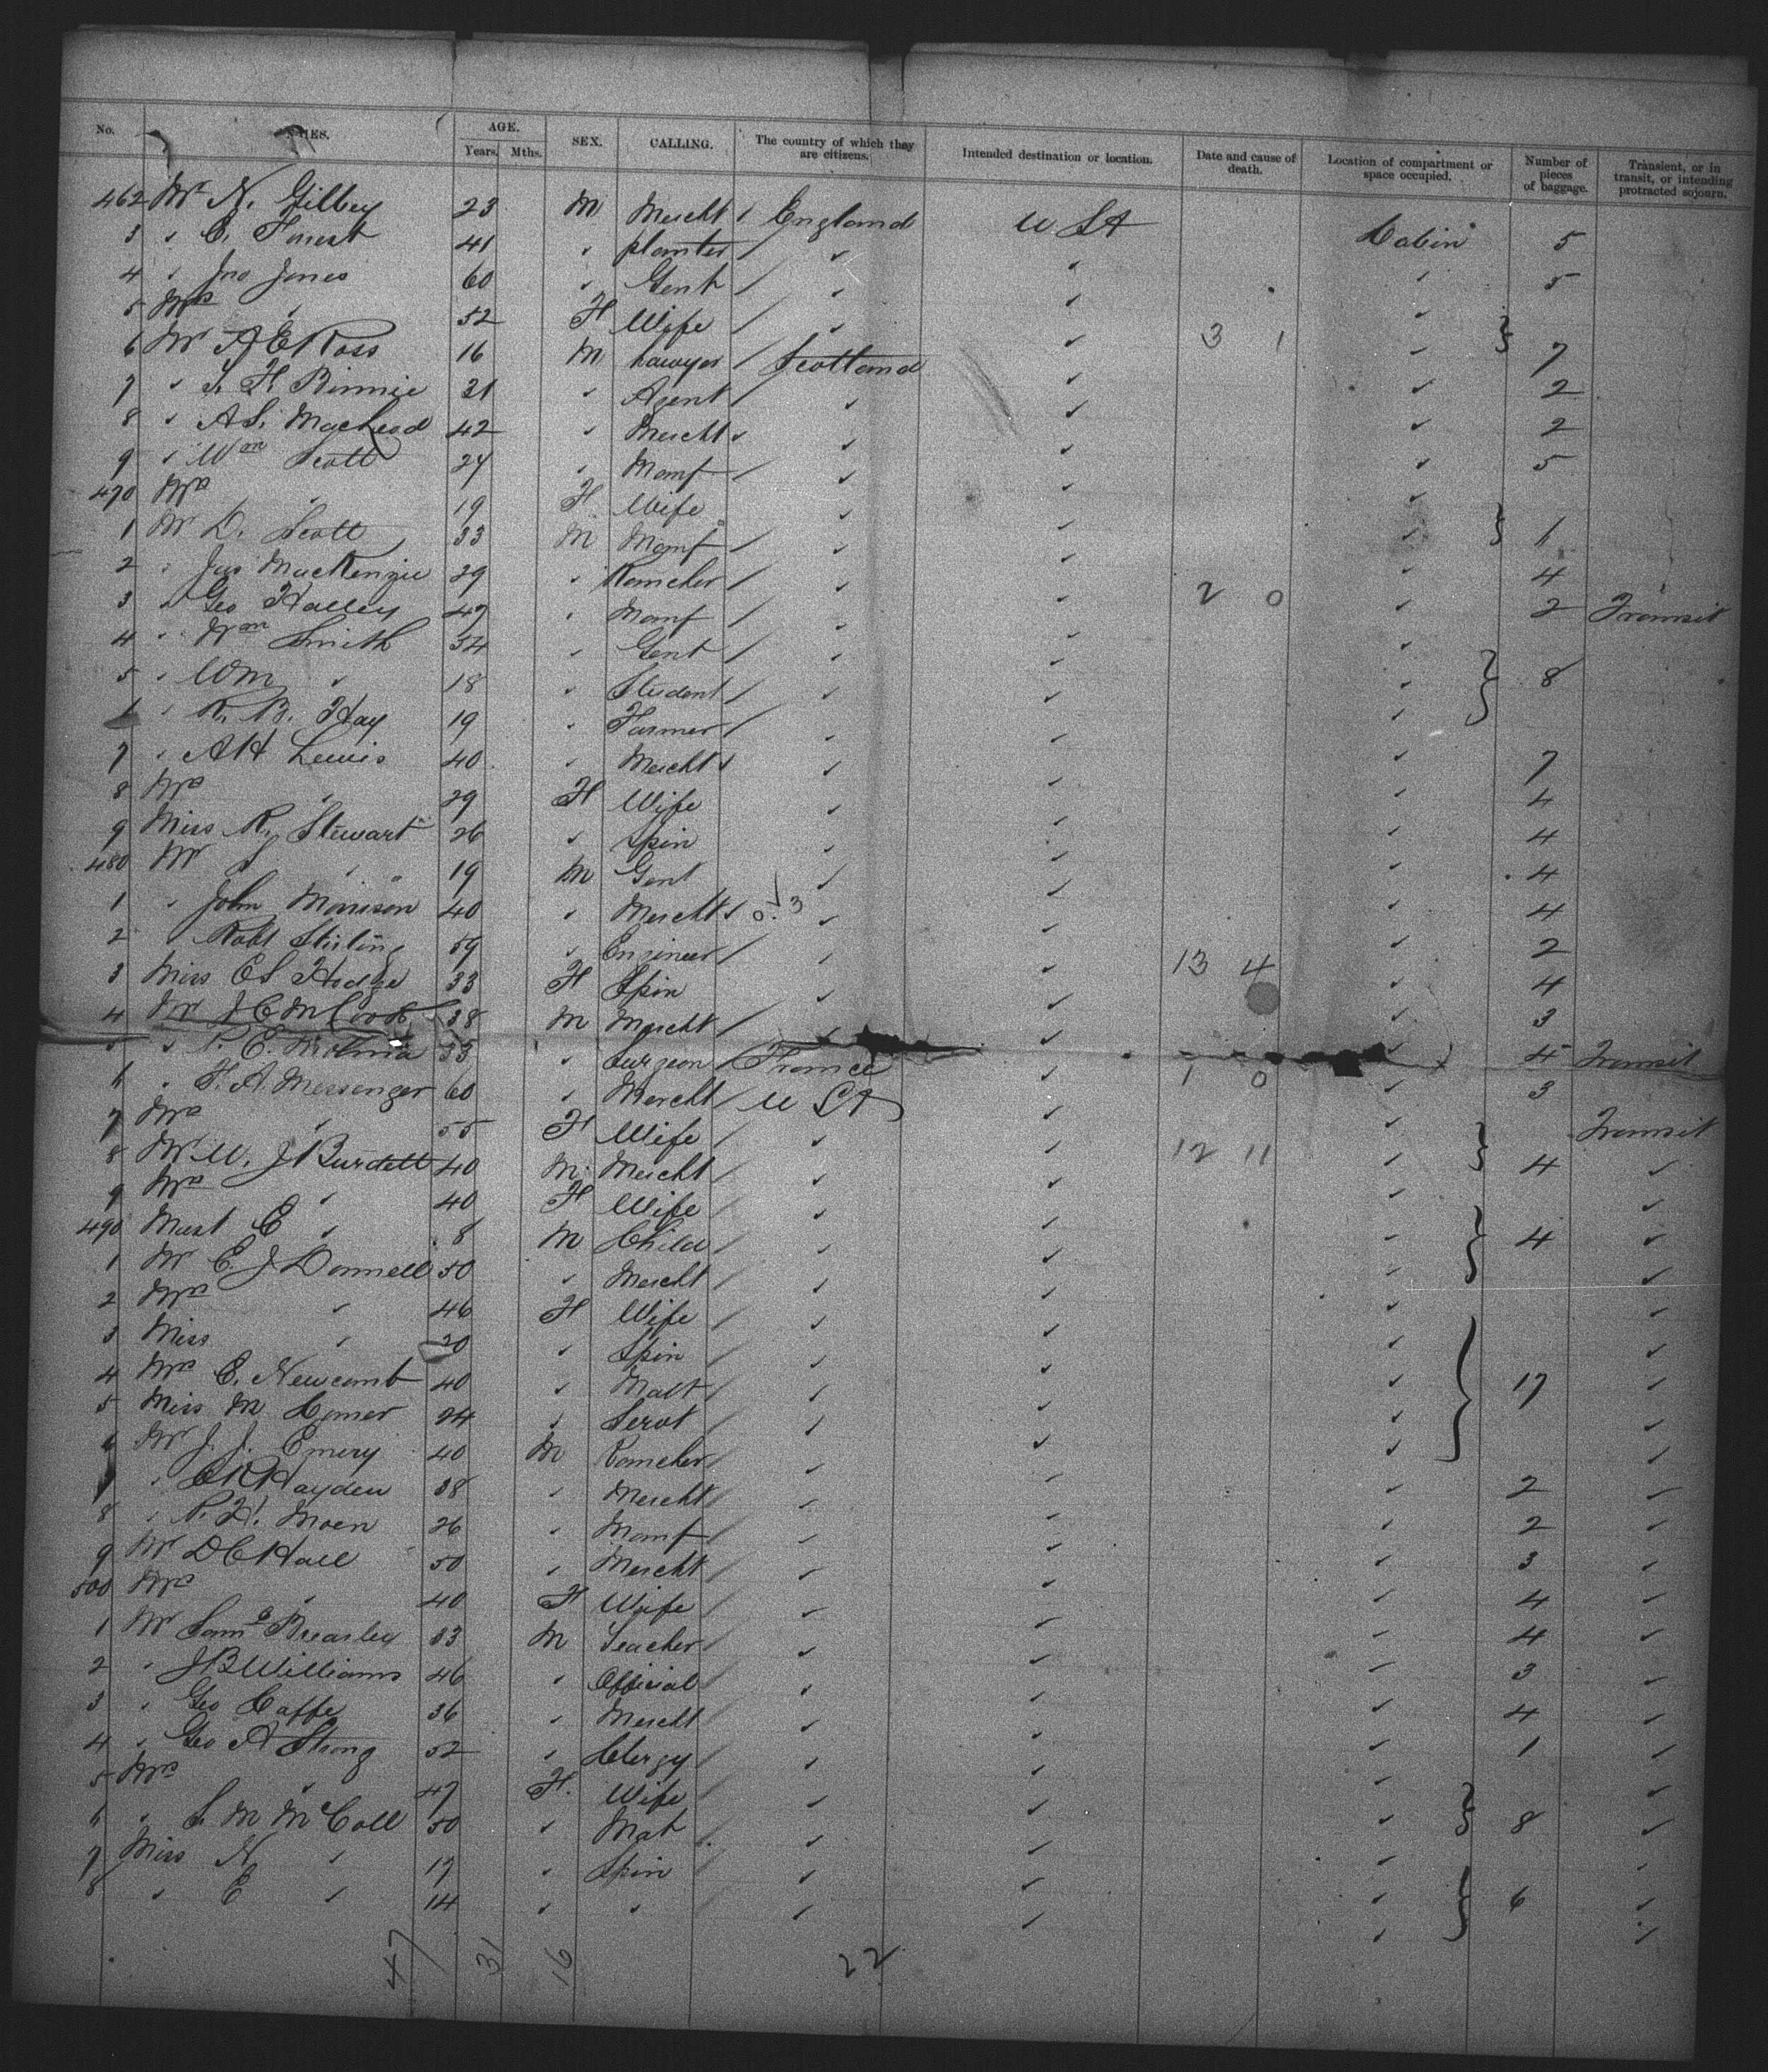 No. NAMES. AGE. Years. Mths. SEX. CALLING. The country of which they are citizens. Intended destination or location. Date and cause of death. Location of compartment or space occupied. Number of pieces of baggage. Transient, or in transit, or intending protracted sojourn.
462 Mr N. Gilbey 23 M Mercht England U St Cabin 5
3 " C. Forrest 41 " planter / " " " 5
4 " Jno Jones 60 " Gent / " " "
5 Mrs " 52 F Wife / " " 3 1 " 7
6 Mr A E Ross 16 M Lawyer / Scotland " " 2
7 " J. H. Binnie 31 " Agent / " " " 2
8 " A S. MacLeod 42 " Mercht " " " 5
9 " Wm Scott 27 " Manf / " " "
470 Mrs " 19 F Wife " " " 1
1 Mr D. Scott 33 M Manf / " " " 4
2 " Jas MacKenzie 29 " Rancher / " " 2 0 " 2 Transit
3 " Geo Halley 47 " Manf / " " "
4 " Wm Smith 54 " Gent / " " " 8
5 " Wm " 18 " Student / " " "
6 " R. B. Hay 19 " Farmer / " " " 7
7 " A H Lewis 40 " Mercht " " " 4
8 Mrs " 29 F Wife " " " 4
9 Miss R. Stewart 26 " Spin " " " 4
480 Mr J " 19 M Gent " " " 4
1 " John Morrison 40 " Mercht 0 / 3 " " " 2
2 " Robt Stirling 59 " Engineer / " " 13 4 " 4
3 Miss C S Hodge 33 F Spin " " " 3
4 Mr J C M Cook 38 M Mercht / " " " 4 Transit
5 " 33 " Surgeon / France " 1 0 " 3
6 " F. A. Messenger 60 " Mercht / U St " " Transit
7 Mrs " 55 F Wife / " " 12 11 " 4 "
8 Mr W. J Burdett 40 M Mercht / " " " "
9 Mrs " 40 F Wife / " " " 4 "
490 Mast E " 8 M Child / " " " "
1 Mr E. J Donnell 50 " Mercht / " " " "
2 Mrs " 46 F Wife / " " " "
3 Miss " 20 " Spin / " " " 17 "
4 Mrs C. Newcomb 40 " Matt / " " " "
5 Miss M 24 " Servt / " " " "
6 Mr J. J. Emery 40 M Rancher / " " " 2 "
7 " C R Hayden 38 " Mercht / " " " 2 "
8 " P. H. Moen 26 " Manf / " " " 3 "
9 Mr D C Hall 50 " Mercht / " " " 4 "
500 Mrs " 40 F Wife / " " " 4 "
1 Mr Saml Brearley 33 M Teacher / " " " 3 "
2 " J B Williams 46 " Official / " " " 4 "
3 " Geo Caffe 36 " Mercht / " " " 1 "
4 " Geo A Strong 52 " Clergy / " " " "
5 Mrs " 47 F Wife / " " " 8 "
6 " S. M McColl 50 " Mat / " " " "
7 Miss N. " 17 " Spin / " " " 6 "
8 " E " 14 " " " " " "
47 31 16 22